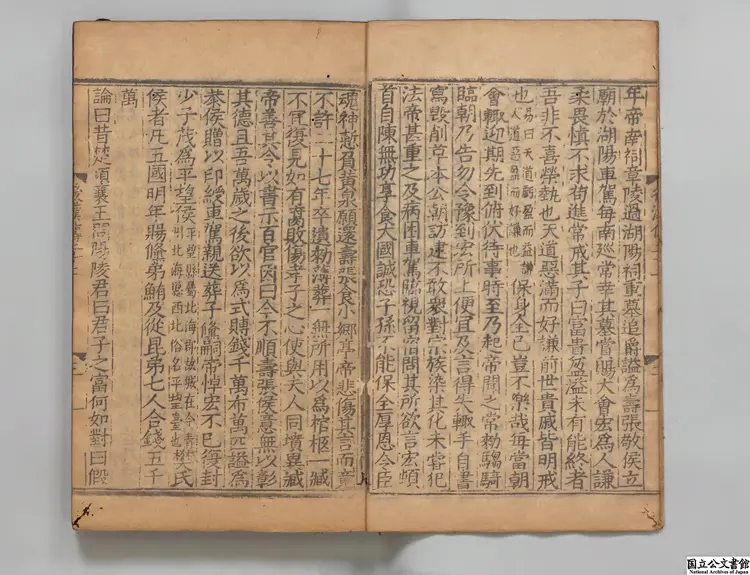 年帝幸祠章陵過湖陽祠重墓追爵謚為壽張敬侯立
廟於湖陽車駕每南巡常幸其墓賞賜大會宏為人謙
柔畏慎不求苟進常戒其子曰富貴盈溢未有能終者
吾非不喜榮埶也天道惡滿而好謙前世貴戚皆明戒
也易曰天道虧盈而益謙人道惡盈而好謙也保身全已豈不樂哉每當朝
會輙迎期先到俯伏待事時至乃起帝聞之常勑騶騎
臨朝乃告勿令豫到宏所上便宜及言得失輙手自書
寫毀削草本公朝訪逮不敢衆對宗族染其化未甞犯
法帝甚重之及病困車駕臨視留宿問其所欲言宏頓
首自陳無功享食大國誠恐子孫不能保全厚恩令臣
魂神慙負黄泉願還壽張食小鄉亭帝悲傷其言而竟
不許二十七年卒遺勑薄葬一無所用以為棺柩一臧
不冝復見如有腐敗傷孝子之心使與夫人同墳異臧
帝善其令以書示百官因曰今不順壽張侯意無以彰
其德且吾萬歲之後欲以為式賻錢千萬布萬匹謚為
恭侯贈以印綬車駕親送葬子鯈嗣帝悼宏不已復封
少子茂為平望侯平望縣屬北海郡故城在今青州北海縣西北俗名平望臺也樊氏
侯者凡五國明年賜鯈弟鮪及從昆弟七人合錢五千
萬
論曰昔楚頃襄王問陽陵君曰君子之富何如對曰假
国立公文書館
National Archives of Japan